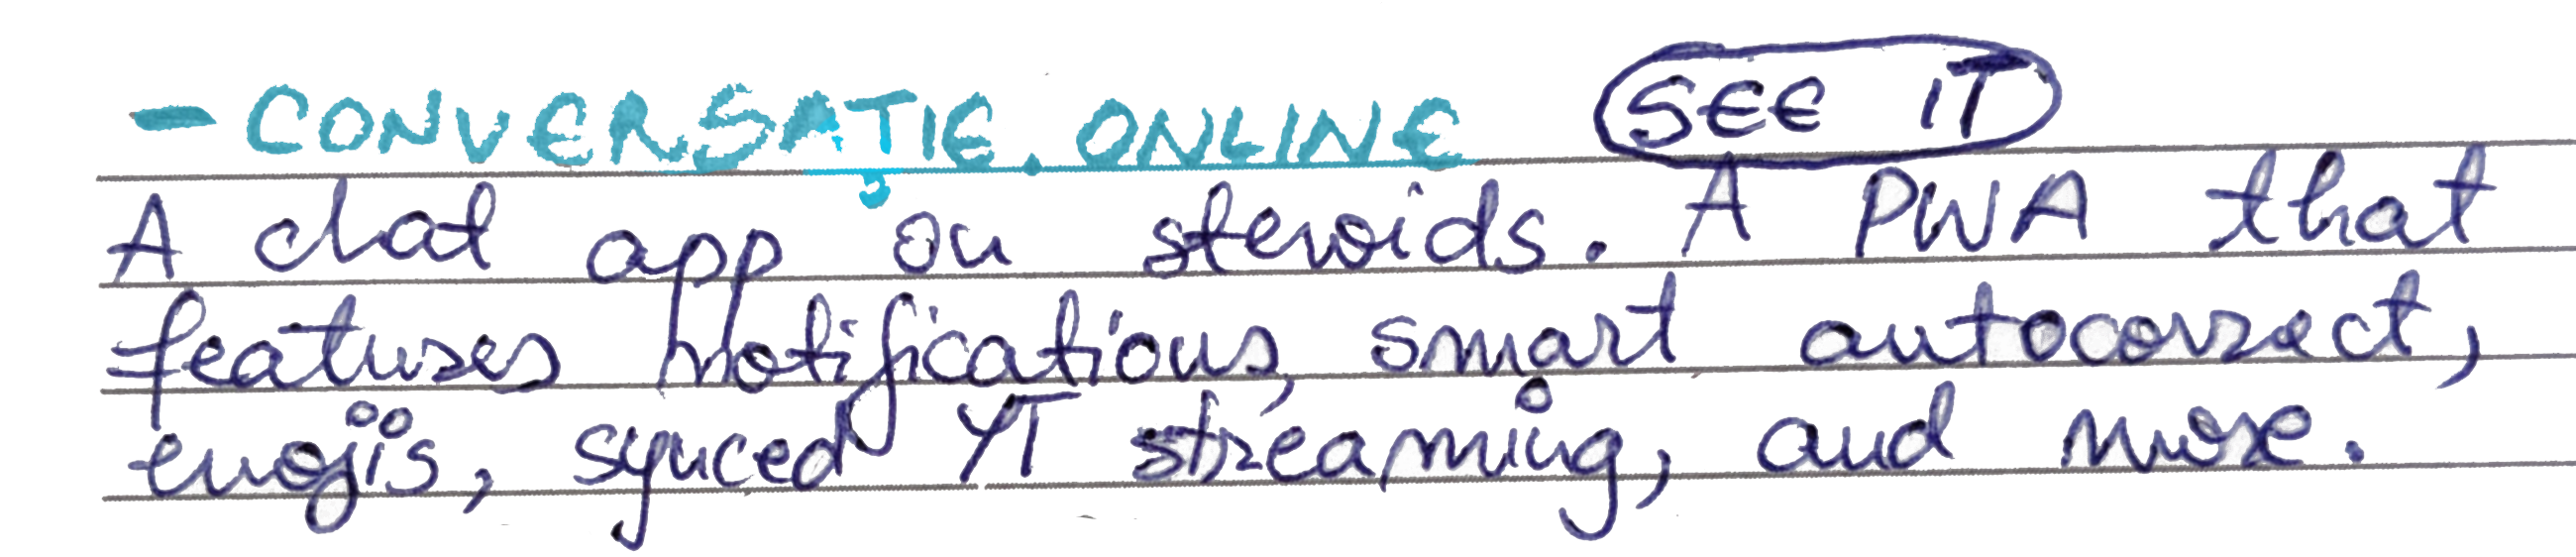 - CONVERSAȚIE.ONLINE SEE IT
A chat app on steroids. A PWA that
features notifications, smart autocorrect,
emojis, synced YT streaming, and more.